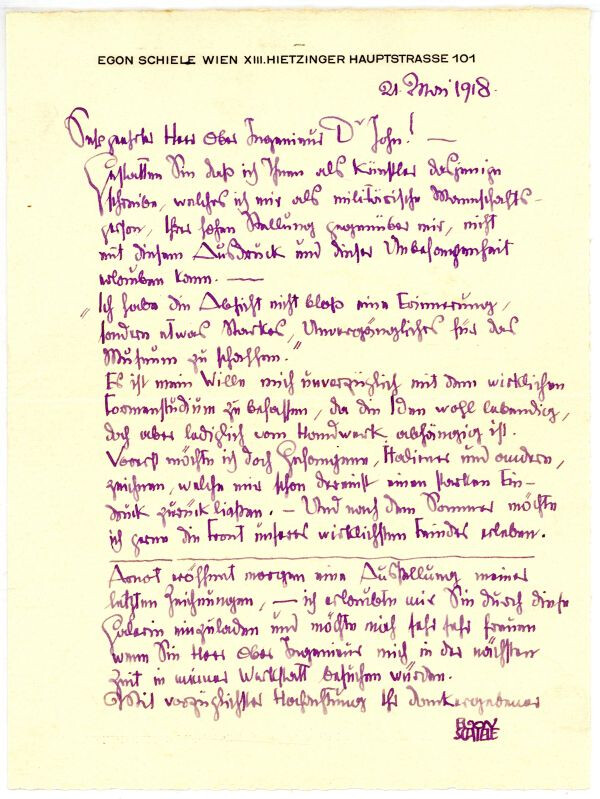 EGON SCHIELE WIEN XIII. HIETZINGER HAUPTSTRASSE 101
21. Mai 1918.
Sehr geehrter Herr Ober Ingenieur Dr John! —
Gestatten Sie daß ich Ihnen als Künstler dasjenige
schreibe, welches ich mir als militärische Mannschafts-
person, Ihrer hohen Stellung gegenüber mir, nicht
mit diesem Ausdruck und dieser Unbefangenheit
erlauben kann. —
„Ich habe die Absicht nicht bloß eine Erinnerung,
sondern etwas Starkes, Unvergängliches für das
Museum zu schaffen."
Es ist mein Wille mich unverzüglich mit dem wirklichen
Formenstudium zu befassen, da die Idee wohl lebendig,
doch aber lediglich vom Handwerk abhängig ist.
Vorerst möchte ich doch Gefangene, Italiener und andere,
zeichnen, welche mir schon dereinst einen starken Ein-
druck zurück ließen. – Und nach dem Sommer möchte
ich gerne die Front unseres wirklichsten Feindes erleben.
Arnot eröffnet morgen eine Ausstellung meiner
letzten Zeichnungen, — ich erlaubte mir Sie durch diese
Galerie einzuladen und möchte mich sehr sehr freuen
wenn Sie Herr Ober Ingenieur mich in der nächsten
Zeit in meiner Werkstatt besuchen würden.
Mit vorzüglichster Hochachtung Ihr dankergebener
EGON
SCHIELE